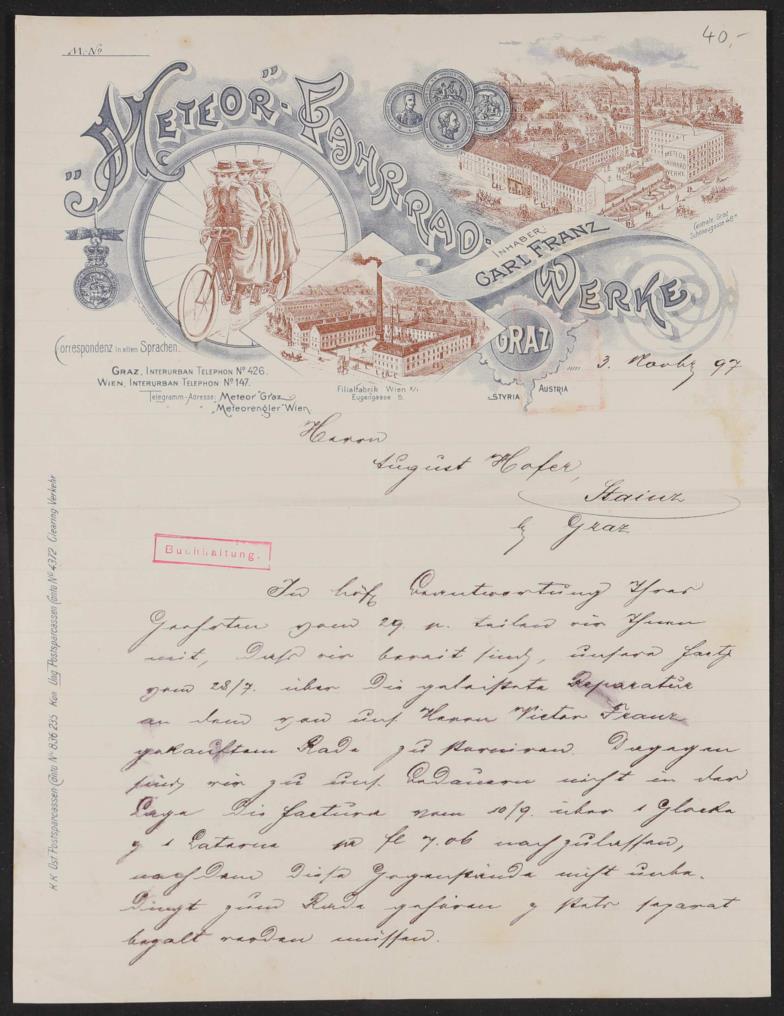 40,-
M. No
"METEOR"-FAHRRAD-WERKE
INHABER:
CARL FRANZ
METEOR
FAHRRAD
WERKE
Centrale: Graz
GRAZ
Correspondenz in allen Sprachen.
GRAZ, INTERURBAN TELEPHON No 426.
WIEN, INTERURBAN TELEPHON No 147.
Telegramm-Adresse: "Meteor" Graz
"Meteorengler" Wien
Filialfabrik Wien X/1
Eugengasse 5.
STYRIA
AUSTRIA
3. Novbr 97
Herrn
August Hofer,
Stainz
b/ Graz
Buchhaltung.
In höfl Beantwortung Ihres
Geehrten vom 29. p. teilen wir Ihnen
mit, dass wir bereit sind, unsere Factg
vom 28/7. über die geleistete Reparatur
an dem von uns Herrn Victor Franz
gekauftem Rade zu storniren. Dagegen
sind wir zu uns. Bedauern nicht in der
Lage die Factura vom 10/9. über 1 Glocke
& 1 Laterne pr fl 7.06 nachzulassen,
nachdem diese Gegenstände nicht unbe-
dingt zum Rade gehören & stets separat
bezalt werden müssen.
K. K. Öst. Postsparcassen Conto No 836.235 Kön. Ung. Postsparcassen Conto No 4372 Clearing Verkehr